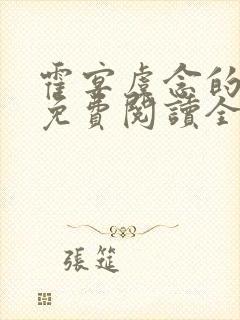 霍宴虞念的
免費閱讀全
張筵